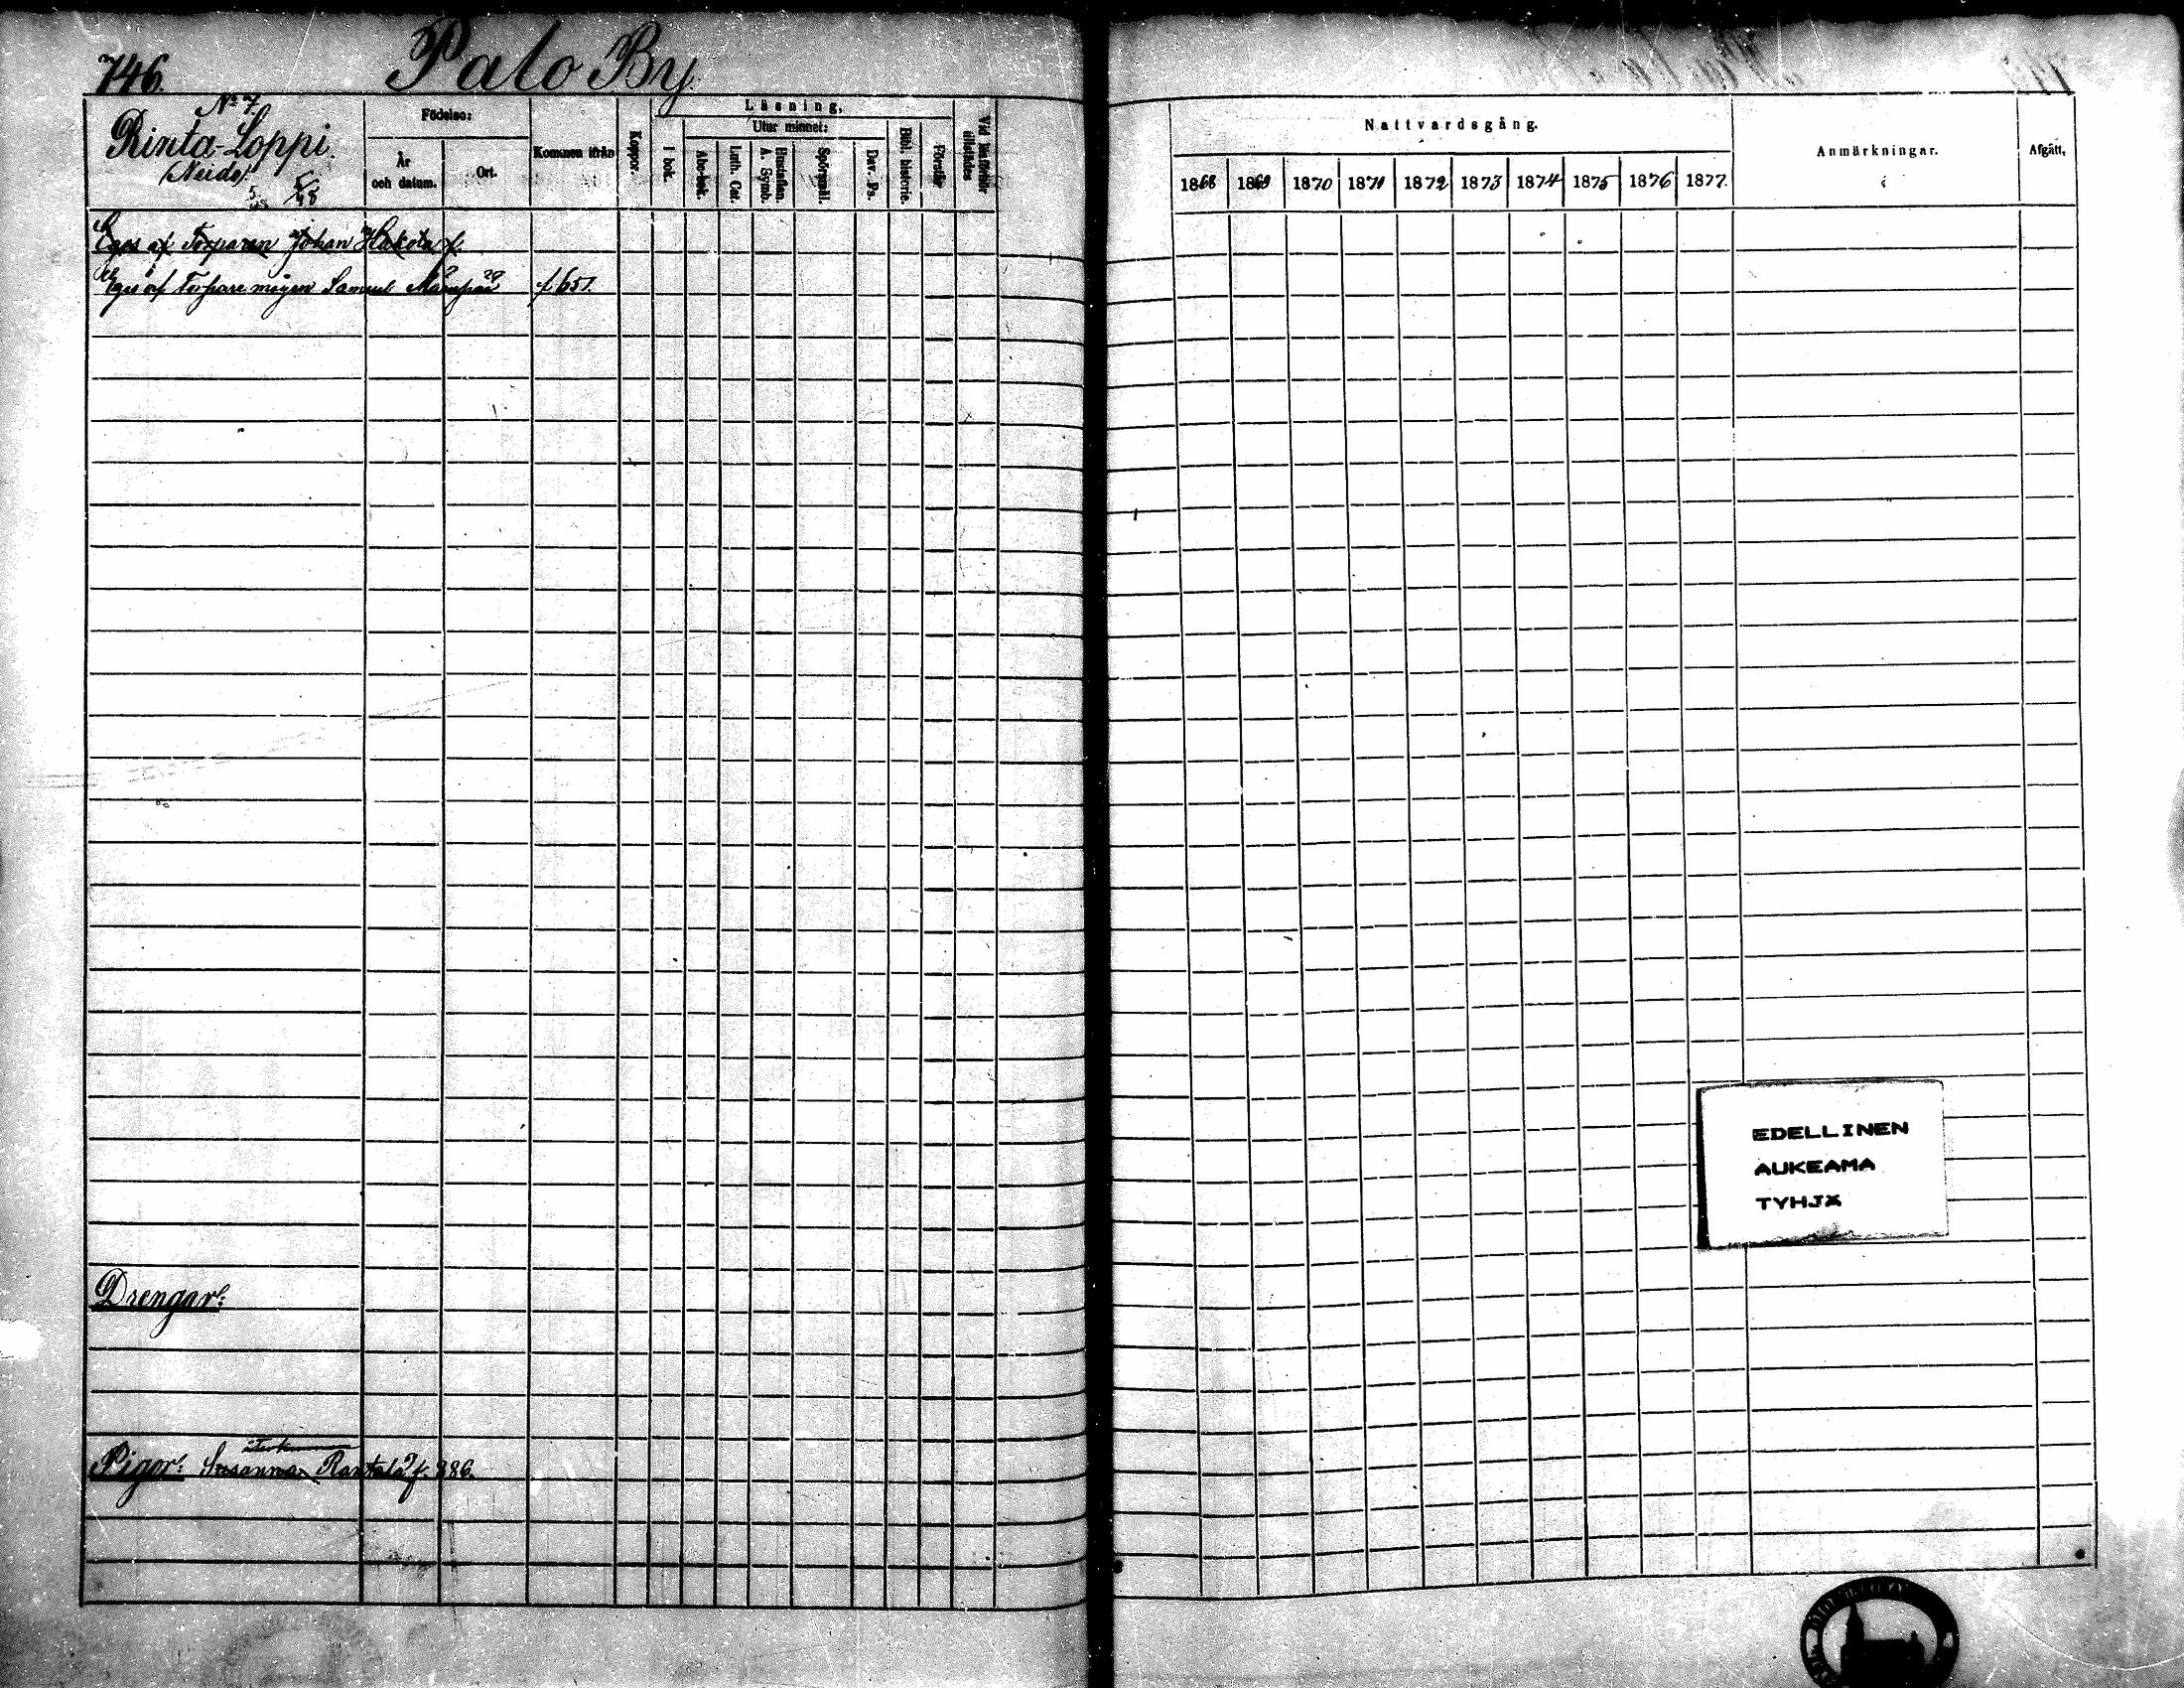 746.
Palo By.
No 7
Rinta-Loppi.
(Neide)
5/48
Födelse:
År
och datum.
Ort.
Kommen ifrån
Koppor.
Läsning.
I bok.
Utur minnet:
Abc-bok.
Luth. Cat.
Hustaflan.
A. Symb.
Spörsmål.
Dav. Ps.
Bibl. historie.
Förstår
Vid
tillstädes
Nattvardsgång.
1868 1869 1870 1871 1872 1873 1874 1875 1876 1877.
Anmärkningar.
Afgått.
Eges af Torparen Johan Hakola f.
Eges af Torpare mågen Samuel f 651.
EDELLINEN
AUKEAMA
TYHJÄ
Drengar:
Pigor: Susanna Rantala f. 886.